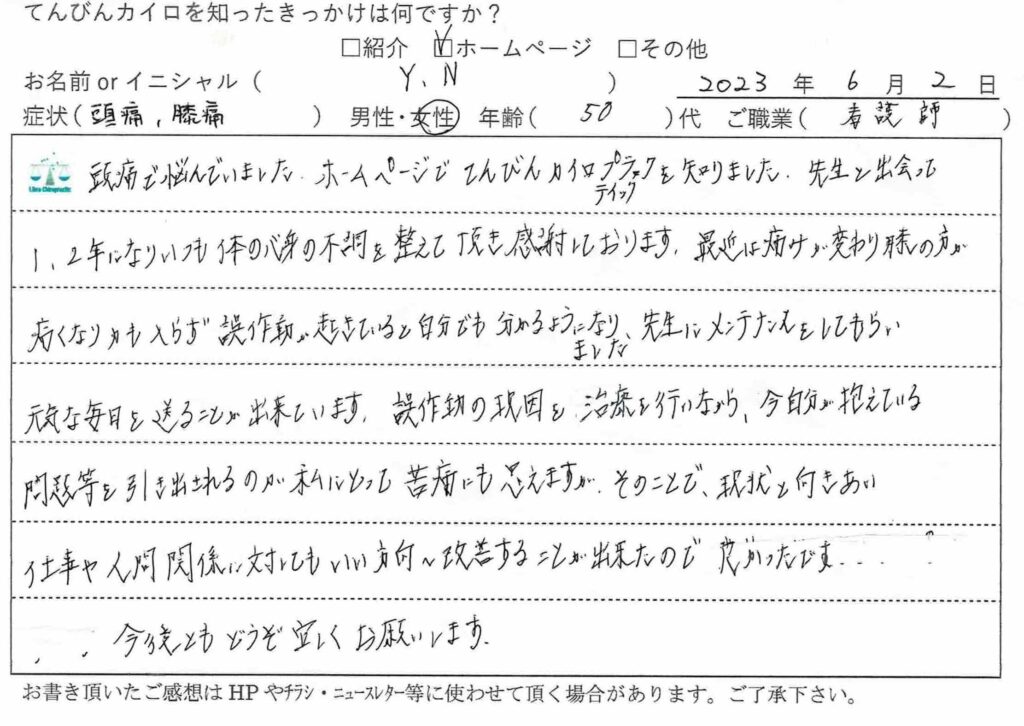 てんびんカイロを知ったきっかけは何ですか？
□紹介 ☑ホームページ □その他
お名前 or イニシャル ( Y.N ) 2023 年 6 月 2 日
症状 ( 頭痛，膝痛 ) 男性・女性 年齢 ( 50 ) 代 ご職業 ( 看護師 )
Libra Chiropractic
頭痛で悩んでいました．ホームページで てんびんカイロプラクティックを知りました．先生と出会って
1、2年になりいつも体の心身の不調を整えて頂き感謝しております．最近は痛みが変わり膝の方が
痛くなり力も入らず誤作動が起きていると自分でも分かるようになりました、先生にメンテナンスをしてもらい
元気な毎日を送ることが出来ています．誤作動の現因を治療を行いながら、今自分が抱えている
問題等を引き出されるのが私にとって苦痛にも思えますが．そのことで、現状と向きあい
仕事や人間関係に対してもいい方向へ改善することが出来たので良かったです．．．．
．．今後ともどうぞ宜しくお願いします．
お書き頂いたご感想はHPやチラシ・ニュースレター等に使わせて頂く場合があります。ご了承下さい。